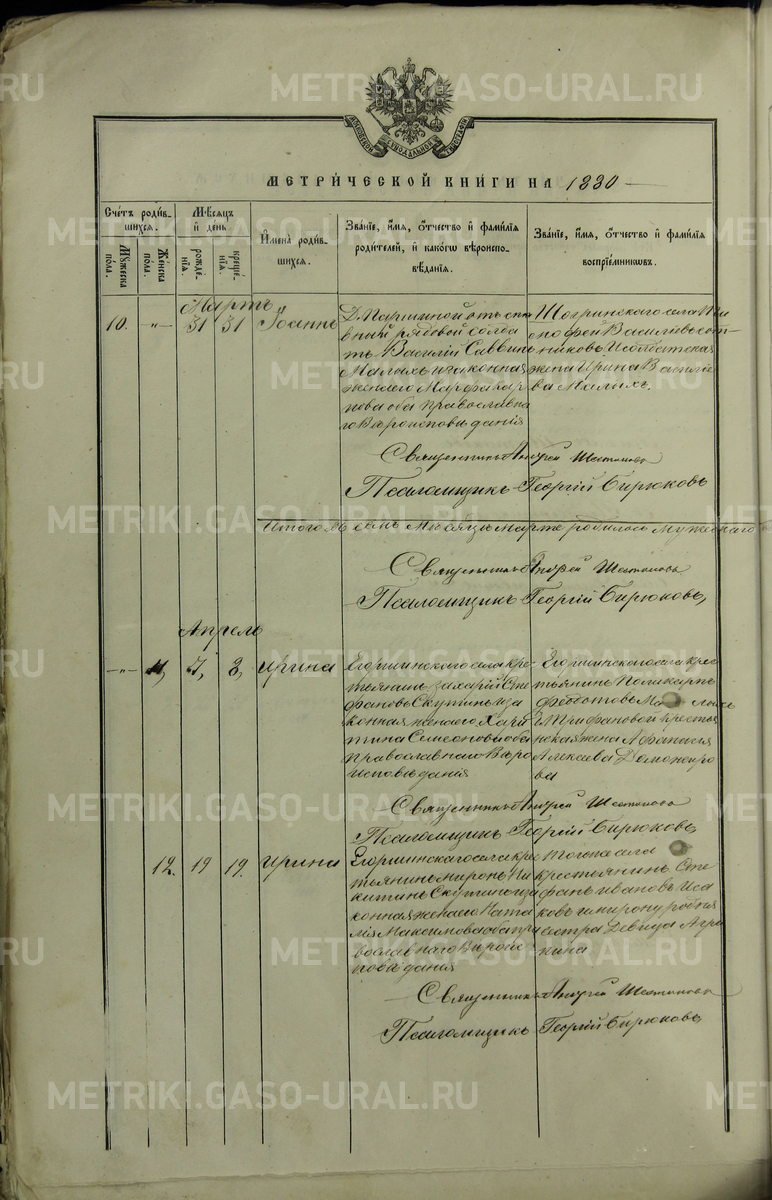 МЕТРИ́ЧЕСКОЙ КНИ́ГИ НА 1880
Счéтъ роди́вшихся.
Мꙋ́жеска пóла.
Жéнска пóла.
Мѣ́сяцъ и҆ дéнь
рождéнїя.
крещéнїя.
И҆менà роди́вшихся.
Звáнїе, и҆́мя, ѻ҆́тчество и҆ фами́лїѧ роди́телей, и҆ какóгѡ вѣроисповѣ́данїя.
Звáнїе, и҆́мя, ѻ҆́тчество и҆ фами́лїѧ воспрїéмникѡвъ.
Мартъ
10. -"- 31 31 Іоаннъ
Д. Паршиной отъ
вный рядовой солда
тъ Василій Саввинъ
Малыхъ и законная
жена его Марфа Кар
пова оба православна
го Вѣроисповѣданія
Шогринскаго села
Василіевъ
и солдатская
жена Ирина Василіе
ва Малыхъ,
Священникъ Андрей Шестаковъ
Псаломщикъ Георгій Бирюковъ
Итого въ семъ Мѣсяцѣ Мартѣ родилось Мужескаго
Священникъ Андрей Шестаковъ
Псаломщикъ Георгій Бирюковъ,
Апрель
-"- 11, 7, 8, Ирина
Егоршинскаго села кре
стьянинъ Захарій Сте
фановъ Скутинъ и за
конная жена его Хари
тина Семеонова оба
Православнаго Вѣро
исповѣданія
Егоршинскаго села крес
тьянинъ Поликарпъ
Федотовъ
Трифановой крестья
нская жена Афанасія
Алексеева
Священникъ Андрей Шестаковъ
Псаломщикъ Георгій Бирюковъ,
12. 19 19. Ирина
Егоршинскаго села кре
стьянинъ Миронъ Ни
китинъ Скутинъ и за
конная жена его Ната
лія Максимова оба пра
вославнаго Вѣроис
повѣданія
Тогоже села
крестьянинъ Сте
фанъ Ивановъ Иса
ковъ и Мирону родная
сестра Девица Агри
пина
Священникъ Андрей Шестаковъ
Псаломщикъ Георгій Бирюковъ,
METRIKI.GASO-URAL.RU